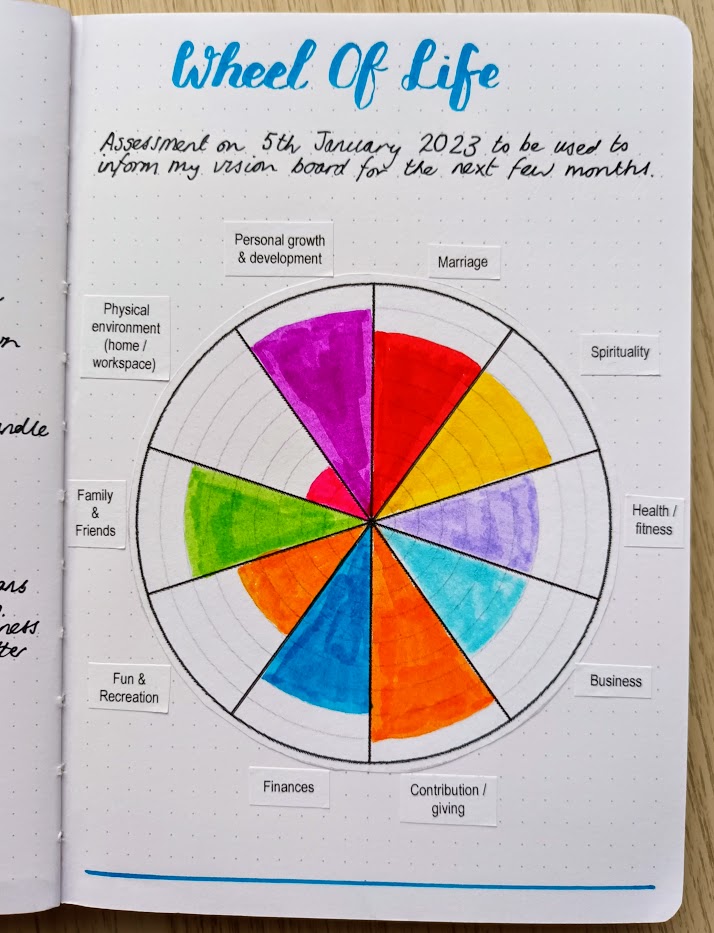 Wheel Of Life
Assessment on 5th January 2023 to be used to
inform my vision board for the next few months.
Personal growth
& development
Marriage
Physical
environment
(home /
workspace)
Spirituality
Family
&
Friends
Health /
fitness
Fun &
Recreation
Business
Finances
Contribution /
giving